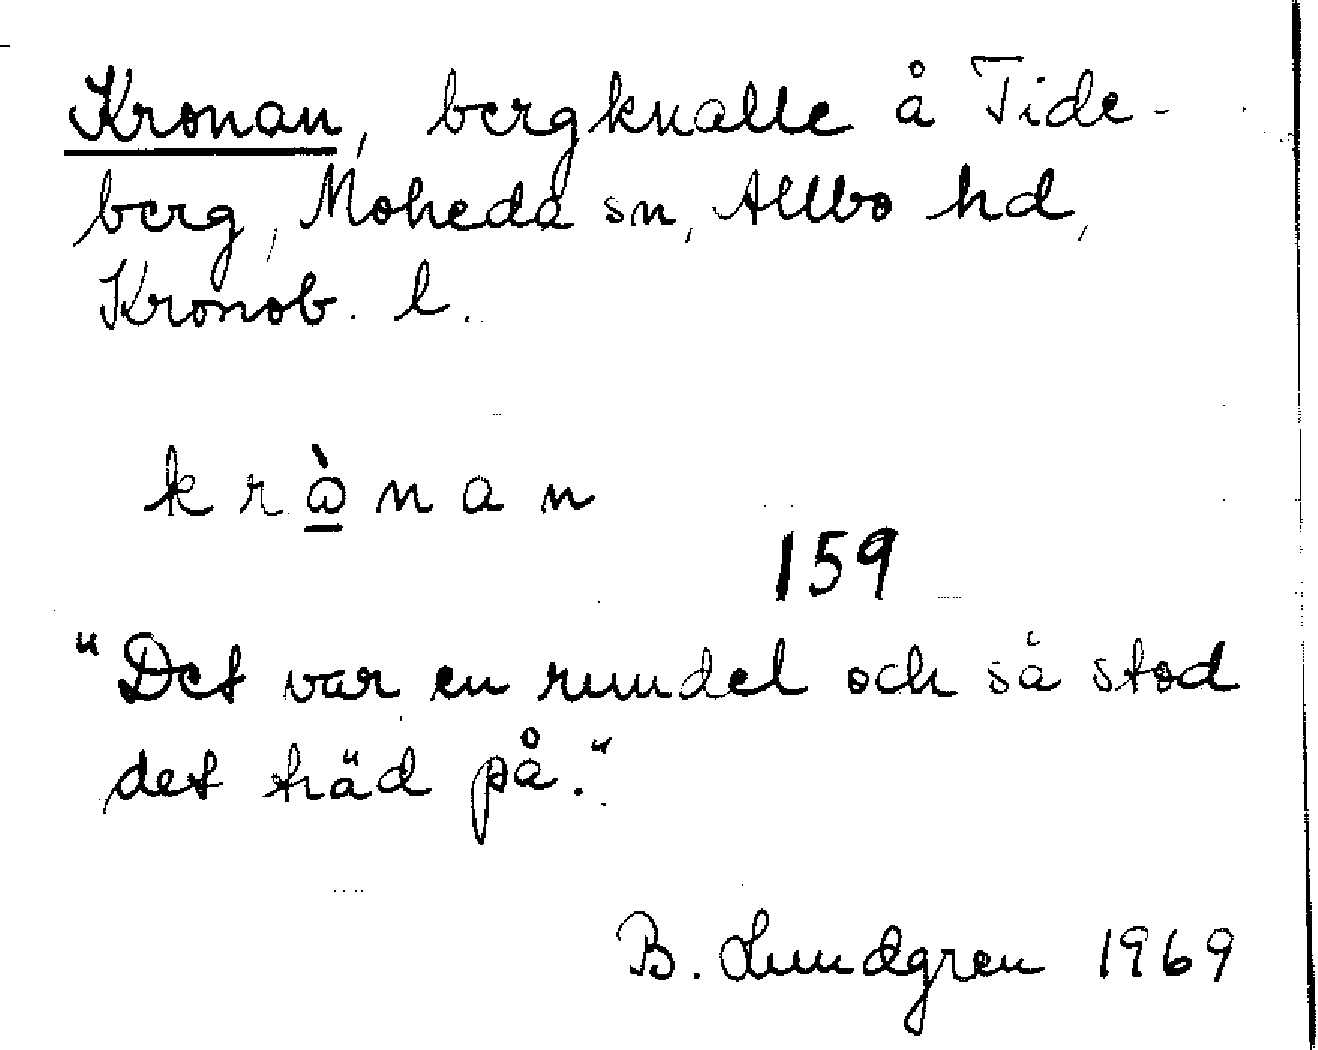 Kronan, bergknalle å Tide-
berg, Moheda sn, Allbo hd,
Kronob. l.
k r ὼ n a n
159
"Det var en rundel och så stod
det träd på."
B. Lundgren 1969